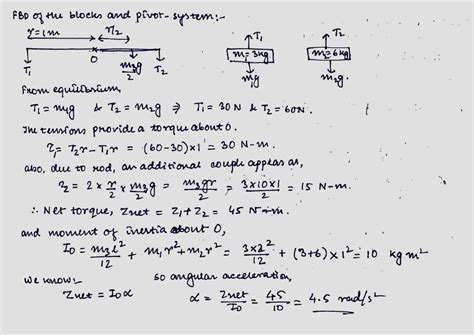 FBD of the blocks and pivot-system:-
r=1m r/2 T₁ T₂
O m₁=3kg m₂=6kg
T₁ m₃g/2 T₂ m₁g m₂g.
From equilibrium,
T₁ = m₁g & T₂ = m₂g ⇒ T₁ = 30 N & T₂ = 60N.
The tensions provide a torque about O.
τ₁ = T₂r - T₁r = (60-30)×1 = 30 N-m.
also, due to rod, an additional couple appear as,
τ₂ = 2 × r/2 × m₃g/2 = m₃gr/2 = 3×10×1/2 = 15 N-m.
∴ Net torque, τnet = τ₁ + τ₂ = 45 N-m.
and moment of inertia about O,
I₀ = m₃l²/12 + m₁r² + m₂r² = 3×2²/12 + (3+6)×1² = 10 kg m²
we know:- so angular acceleration,
τnet = I₀α α = τnet/I₀ = 45/10 = 4.5 rad/s²